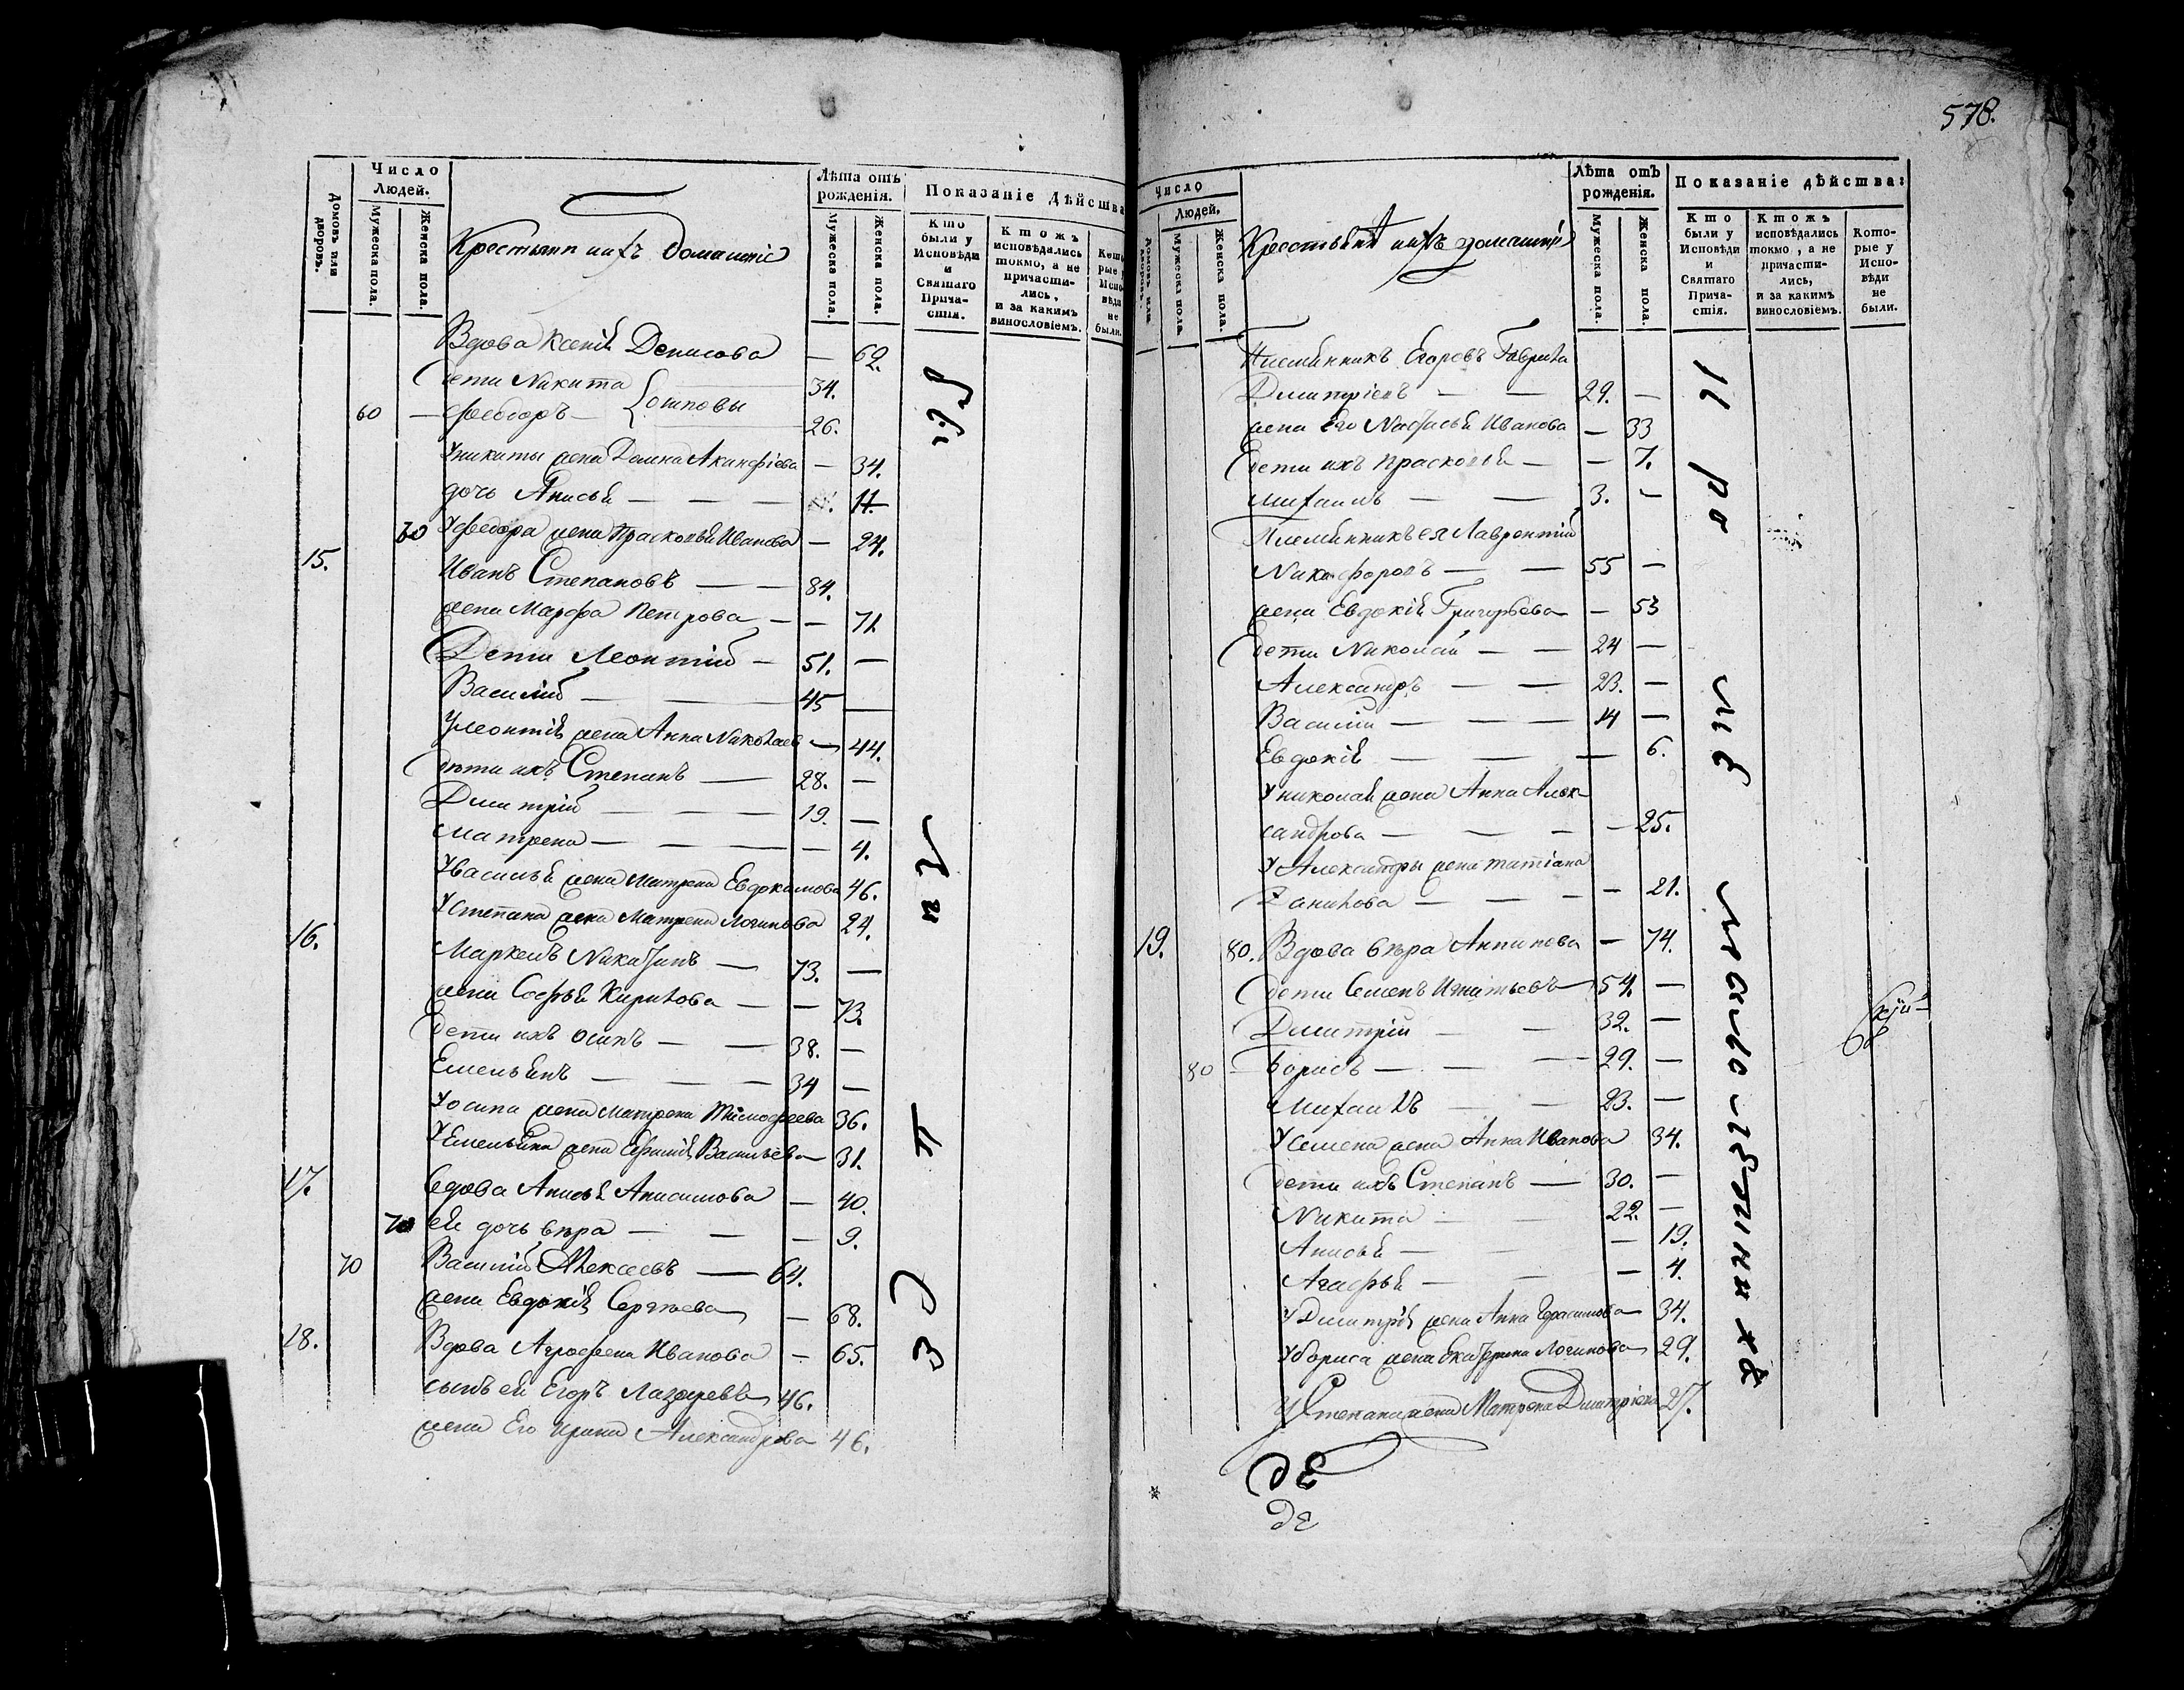 578.
Домовъ или дворовъ.
Число Людей.
Мужеска пола.
Женска пола.
Крестьяне и ихъ домашніе
Лѣта отъ рожденія.
Мужеска пола.
Женска пола.
Показаніе дѣйства
Кто были у Исповѣди и Святаго Причастія.
Ктожъ исповѣдались токмо, а не причастились, и за какимъ винословіемъ.
Вдова Ксенія Денисова — 62.
дети Никита 34.
60 — Феодоръ — 26.
У никиты жена Домна Акинфіева — 34.
дочь Анисья — — — 11
60 У феодора жена Прасковья Иванова — 24.
15. Иванъ Степановъ — — 84.
жена Марфа Петрова — — 71
Дети Леонтій — 51. —
Василій — 45 —
У леонтія жена Анна Николаев — 44.
дѣти ихъ Степанъ — 28. —
Дмитрій — — — 19. —
матрена — — — — 4.
У василья жена Матрена Евдокимова 46.
У степана жена Матрена Логинова 24.
16. Маркелъ Никитинъ — 73. —
жена Софья Кирилова — — 73.
дети ихъ осипъ — — 38. —
Емельянъ — — — 34 —
У осипа жена Матрена Тимофеева 36.
У Емельяна жена Ефимія Васильева — 31.
17. вдова Анисья Анисимова — 40.
70 ея дочь вѣра — — — 9.
70 Василій Алексеевъ — 64.
жена Евдокія Сергѣева — 68.
18. Вдова Агрофена Иванова — 65.
сынъ ея Егоръ Лазаревъ 46.
жена Его ирина Александрова 46.
Число Людей.
Домовъ или дворовъ.
Мужеска пола.
Женска пола.
Крестьяне и ихъ домашніе
Лѣта отъ рожденія.
Мужеска пола.
Женска пола.
Показаніе дѣйства:
Кто были у Исповѣди и Святаго Причастія.
Ктожъ исповѣдались токмо, а не причастились, и за какимъ винословіемъ.
Которые у Исповѣди не были.
Племянникъ Егоровъ Гаврила
Дмитріевъ — — 29. —
жена Его Настасья Иванова — 33
дети ихъ Прасковья — — 7.
михаилъ — — 3. —
Племянникъ ея Лаврентій
Никифоровъ — — 55 —
жена Евдокія Григорьева — 53
дети Николай — — 24 —
Александръ — — 23. —
Василій — — — 14 —
Евдокія — — — 6.
У николая жена Анна Алек
сандрова — — — — 25.
У Александры жена татіана
Данилова — — — — 21.
19. 80. Вдова вѣра Антипова — 74.
дети Семенъ Игнатьевъ 54. —
Дмитрій — — 32. —
80 — Борисъ — — — 29. —
Михаилъ — — 23. —
У семена жена Анна Иванова 34.
дети ихъ Степанъ — 30. —
Никита — — 22. —
Анисья — — — 19.
Агафья — — — 4.
У Дмитрія жена Анна Герасимова 34.
У бориса жена Екатерина Логинова 29.
У Степана жена Матрена Дмитріева 27.